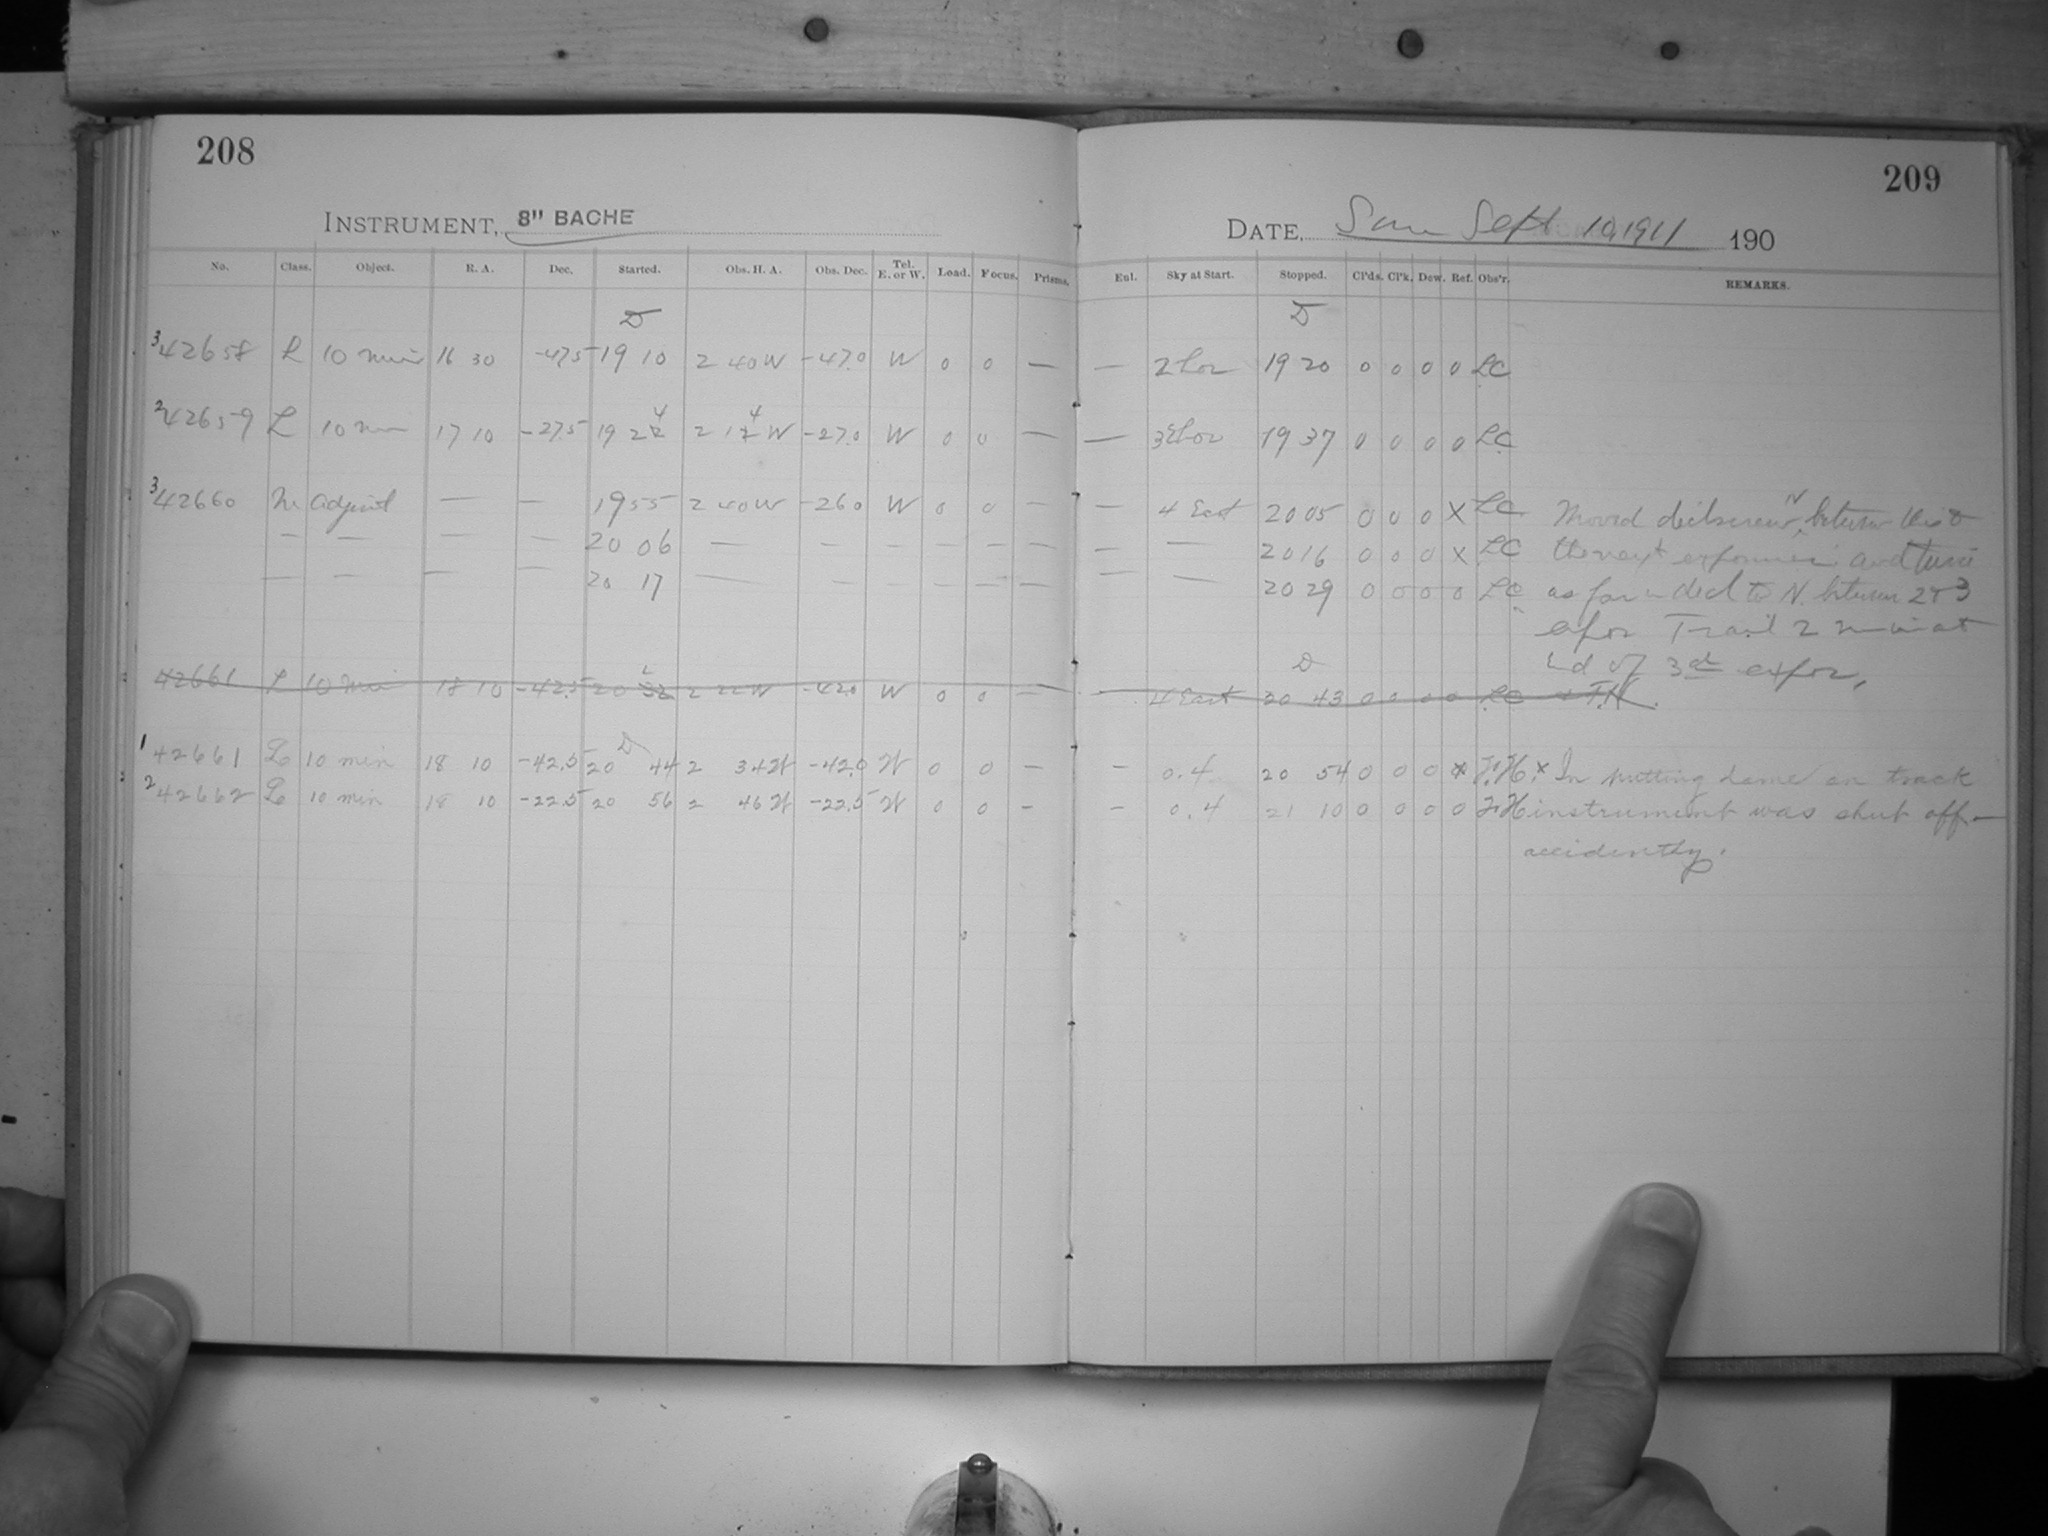 208
INSTRUMENT, 8" BACHE
No. Class. Object. R. A. Dec. Started. Obs. H. A. Obs. Dec. Tel. E. or W. Load. Focus. Prisms.
D
3 42658 L 10 min 16 30 -47.5 19 10 2 40 W -47.0 W 0 0 —
2 42659 L 10 min 17 10 -27.5 19 2 4 2 1 4 W -27.0 W 0 0 —
3 42660 adjust — — 19 55 2 40 W -26.0 W 0 0 —
— — — — 20 06 — — — — — —
— — — — 20 17 — — — — — —
42661 L 10 min 18 10 -42.5 20 32 2 22 W -42.0 W 0 0 —
D
1 42661 L 10 min 18 10 -42.5 20 44 2 34 W -42.0 W 0 0 —
2 42662 L 10 min 18 10 -22.5 20 56 2 46 W -22.5 W 0 0 -
209
DATE, Sun Sept 10, 1911 190
Enl. Sky at Start. Stopped. Cl'ds. Cl'k. Dew. Ref. Obs'r. REMARKS.
D
— 2 19 20 0 0 0 0 LC
— 3 19 37 0 0 0 0 LC
— 4 East 20 05 0 0 0 X LC Moved N between this &
— — 20 16 0 0 0 X LC the next and turn
— — 20 29 0 0 0 0 LC as far in decl to N. between 2 & 3
expos Trail 2 min at
D
end of 3rd expos,
— 4 East 20 43 0 0 0 0 LC & F.H.
— 0.4 20 54 0 0 0 * F.H. x In putting dome on track
— 0.4 21 10 0 0 0 0 F.H instrument was shut off—
accidently.